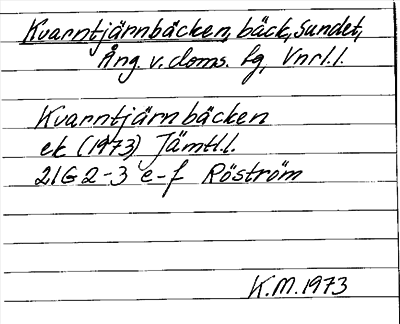 Kvarntjärnbäcken, bäck, Sundet,
Ång v. doms. fg, Vnrl.l.
Kvarntjärnbäcken
ek (1973) Jämtl.l.
21G 2-3 e-f Röström
K.M. 1973